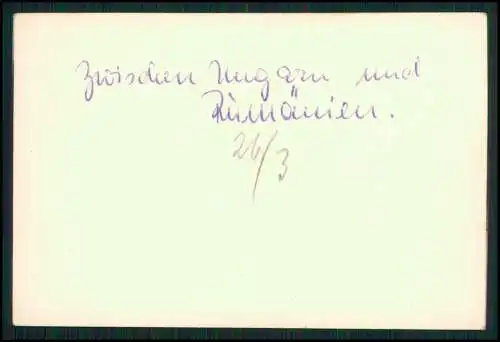 Zwischen Ungarn und
Rumänien.
26/3